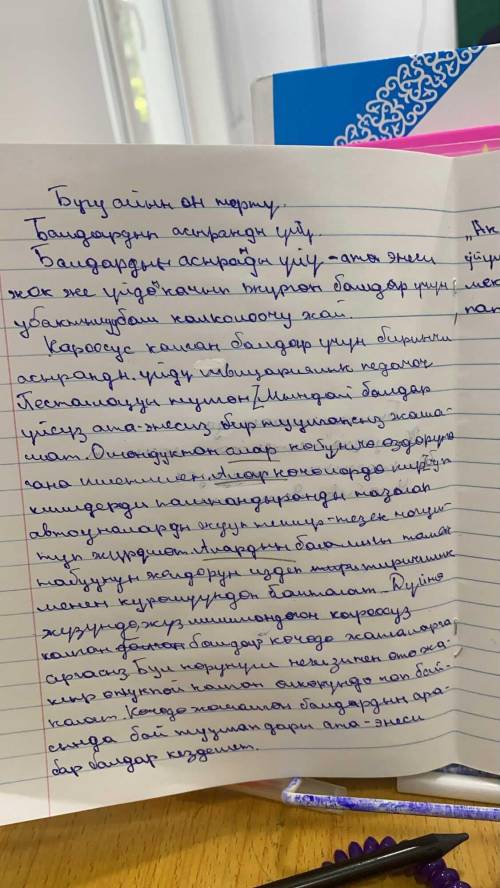 Бугу айын он төртү.
Балдардын асыранды үйү.
Балдардын асыранды үйү - ата энеси
жок же үйдө качып жүргөн балдар үчүн
убактылуу калкалоочу жай.
Кароосуз калган балдар үчүн биринчи
асыранды үйдү швицариялык педагог
Песталоцци түзгөн. Мындай балдар
үйсүз ата-энесиз, бир туугансыз жаша-
шат. Ошондуктан алар көбүнчө өздөрүнө
гана ишенишет. Алар көчөлөрдө жүрүп
кишилерди
автоуналарды жууп темир-тезек
түп жүрүшөт. Алардын балалыгы тамак
табуунун жолдорун издеп тиричилик
менен күрөшүүдөн башталат. Дүйнө
жүзүндө, жүз миллиондогон кароосуз
калган балдар көчөдө жашаларга
аргасыз. Бул көрүнүш негизинен
өлкөлөрдө көп бай-
калат. Көчөдө жашаган балдардын ара-
сында бай туугандары ата-энеси
бар балдар кездешет.
"Ак
үйү
мек
пат